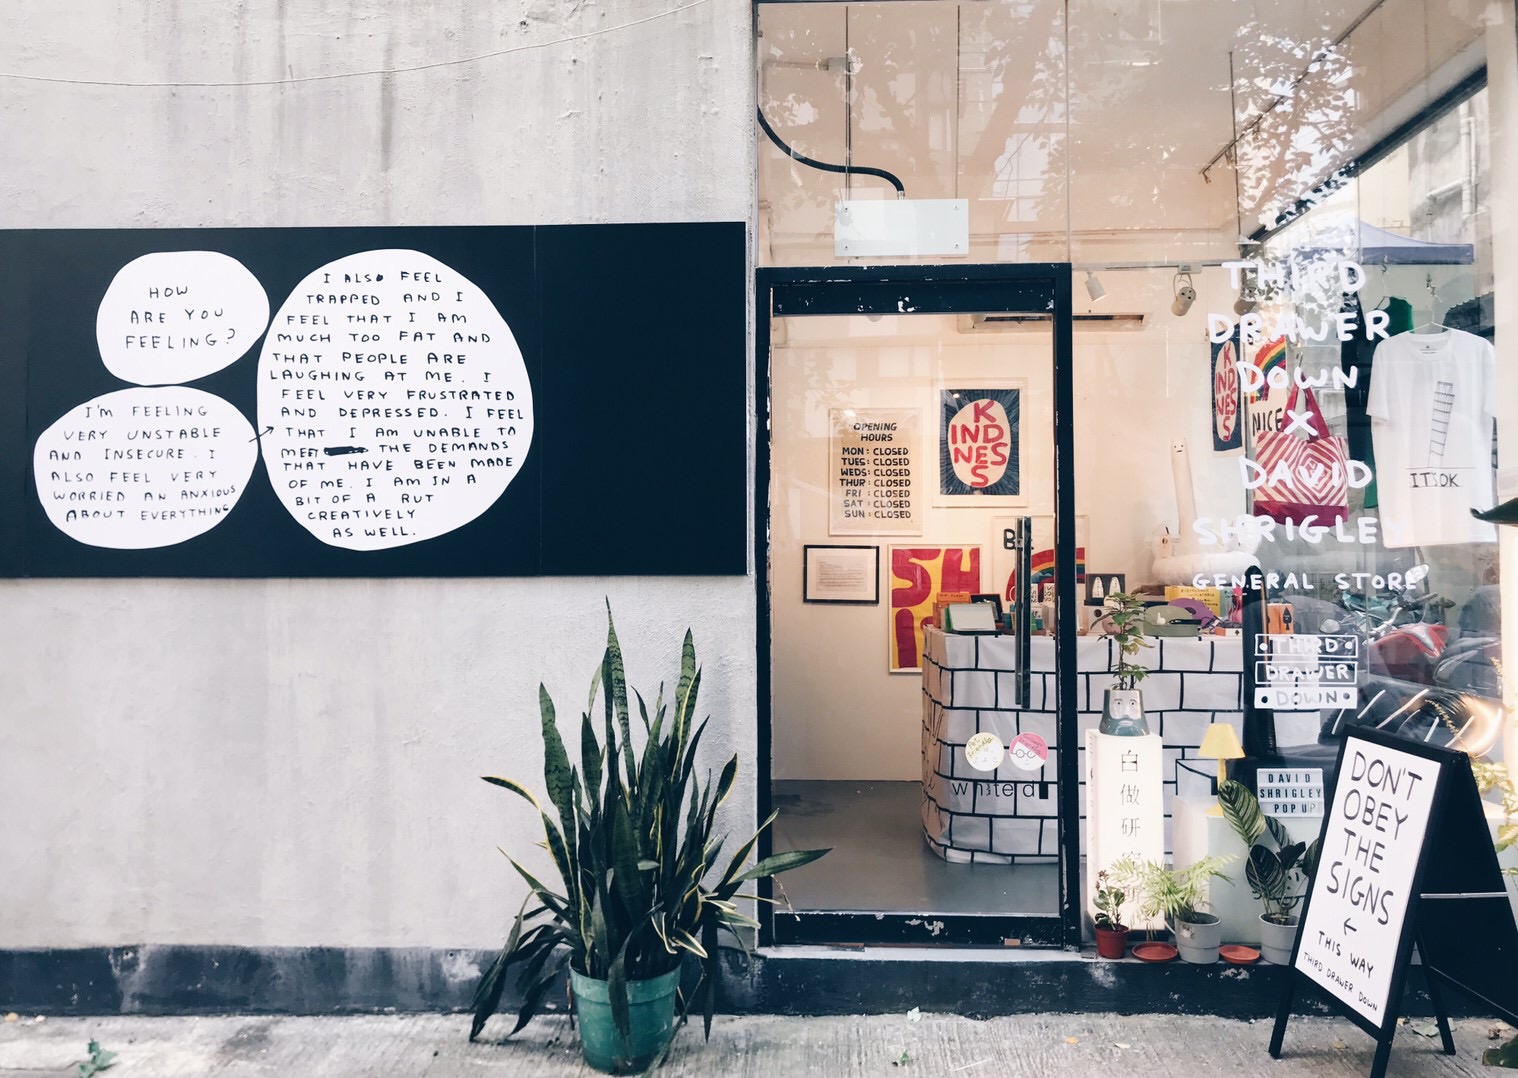 HOW
ARE YOU
FEELING?
I'M FEELING
VERY UNSTABLE
AND INSECURE. I
ALSO FEEL VERY
WORRIED AN ANXIOUS
ABOUT EVERYTHING
I ALSO FEEL
TRAPPED AND I
FEEL THAT I AM
MUCH TOO FAT AND
THAT PEOPLE ARE
LAUGHING AT ME. I
FEEL VERY FRUSTRATED
AND DEPRESSED. I FEEL
THAT I AM UNABLE TO
MEET THE DEMANDS
THAT HAVE BEEN MADE
OF ME. I AM IN A
BIT OF A RUT
CREATIVELY
AS WELL.
OPENING
HOURS
MON: CLOSED
TUES: CLOSED
WEDS: CLOSED
THUR: CLOSED
FRI: CLOSED
SAT: CLOSED
SUN: CLOSED
K
IND
NES
S
S
THIRD
DRAWER
DOWN
X
DAVID
SHRIGLEY
GENERAL STORE
THIRD
DRAWER
DOWN
KINDNESS
NICE
IT'S OK
自做研
DAVID
SHRIGLEY
POP UP
DON'T
OBEY
THE
SIGNS
←
THIS WAY
THIRD DRAWER DOWN